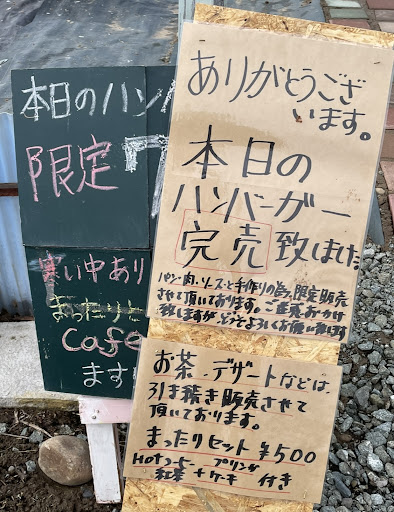 本日のハン
限定
寒い中あり
まったりと
Cafe
ます
ありがとうござ
います。
本日の
ハンバーガー
完売致しました
パン・肉・ソースと手作りの為、限定販売
させて頂いております。ご迷惑おかけ
致しますが、どうぞよろしくお願い致します
お茶、デザートなどは、
引き続き販売させて
頂いております。
まったりセット ¥500
HOTコーヒー プリン
紅茶 + ケーキ 付き